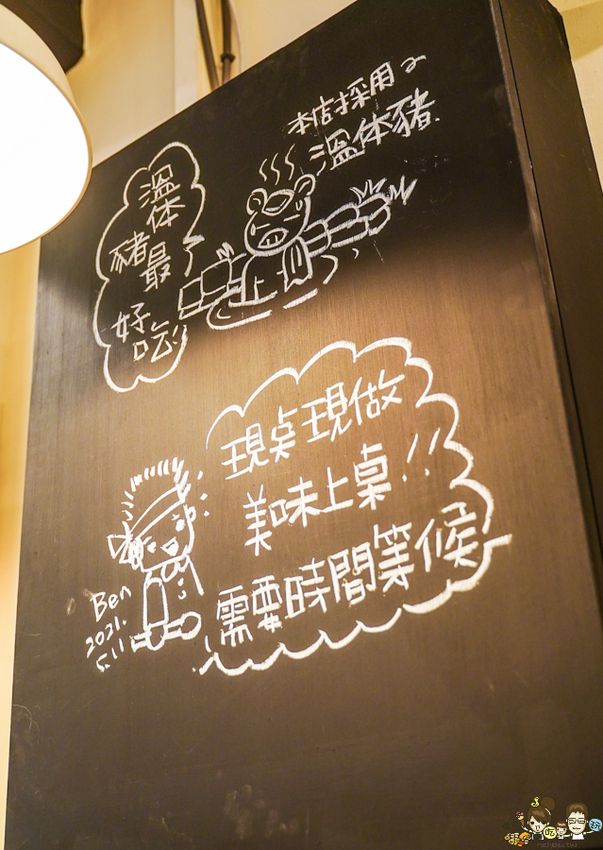 本店採用
溫体豬.
溫体
豬最
好吃!
現桌現做
美味上桌!!
需要時間等候
Ben
2021.
5.11